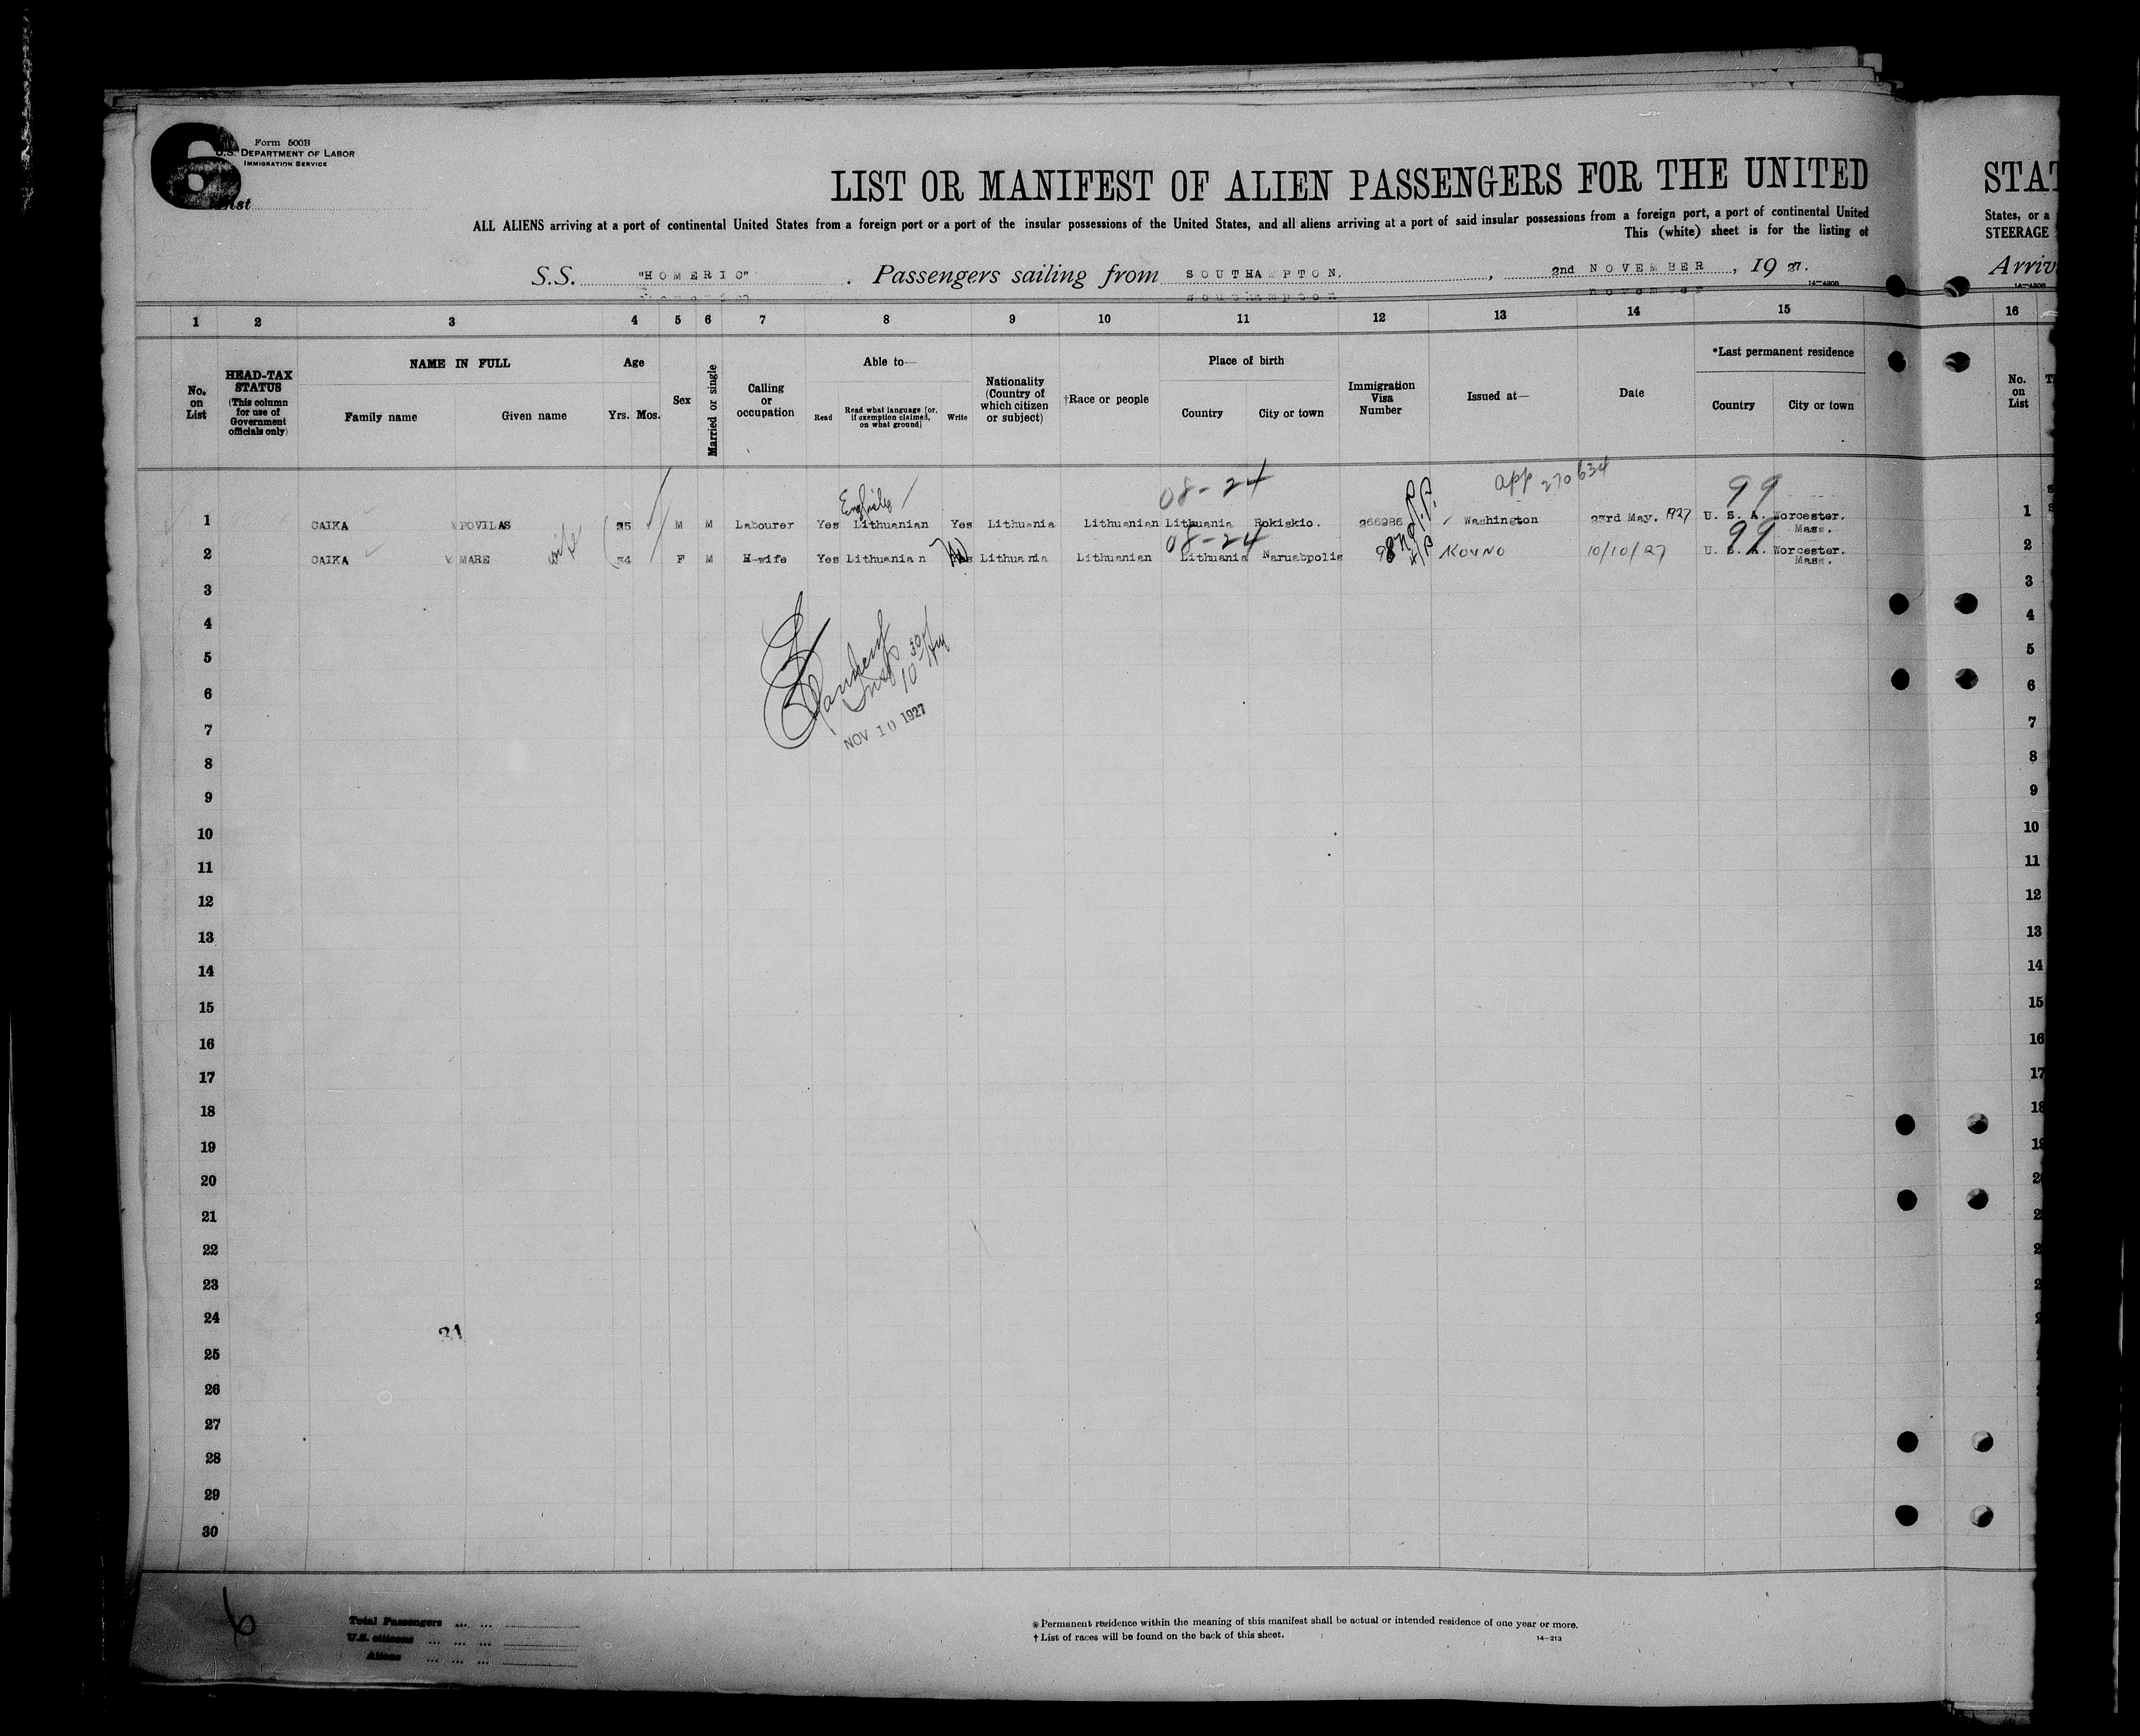 6
Form 500B
U.S. DEPARTMENT OF LABOR
IMMIGRATION SERVICE
List
LIST OR MANIFEST OF ALIEN PASSENGERS FOR THE UNITED
STAT
ALL ALIENS arriving at a port of continental United States from a foreign port or a port of the insular possessions of the United States, and all aliens arriving at a port of said insular possessions from a foreign port, a port of continental United
States, or a
This (white) sheet is for the listing of
STEERAGE
S.S. "HOMERIC". Passengers sailing from SOUTHAMPTON, 2nd NOVEMBER, 19 27.
Arriv
14-4208
1 2 3 4 5 6 7 8 9 10 11 12 13 14 15 16
No. on List
HEAD-TAX STATUS (This column for use of Government officials only)
NAME IN FULL
Family name
Given name
Age
Yrs. Mos.
Sex
Married or single
Calling or occupation
Able to—
Read
Read what language [or, if exemption claimed, on what ground]
Write
Nationality (Country of which citizen or subject)
†Race or people
Place of birth
Country
City or town
Immigration Visa Number
Issued at—
Date
*Last permanent residence
Country
City or town
No. on List
08-24 app 270634 99
English
1 CAIKA POVILAS 35 M M Labourer Yes Lithuanian Yes Lithuania Lithuanian Lithuania Rokiskio. 266986 R.P. Washington 23rd May. 1927 U. S. A. Worcester. Mass. 1
08-24 99
2 CAIKA MARE wife 34 F M H-wife Yes Lithuanian Lithuania Lithuanian Lithuania Naruabpolis 98 KOVNO 10/10/27 U. S. A. Worcester. Mass. 2
3 3
4 4
5 5
6 6
7 7
NOV 10 1927
8 8
9 9
10 10
11 11
12 12
13 13
14 14
15 15
16 16
17 17
18 18
19
20
21
22
23
24
31
25
26
27
28
29
30
6
Total Passengers ... ...
U.S. citizens ... ... ...
Aliens ... ... ...
* Permanent residence within the meaning of this manifest shall be actual or intended residence of one year or more.
† List of races will be found on the back of this sheet.
14-213